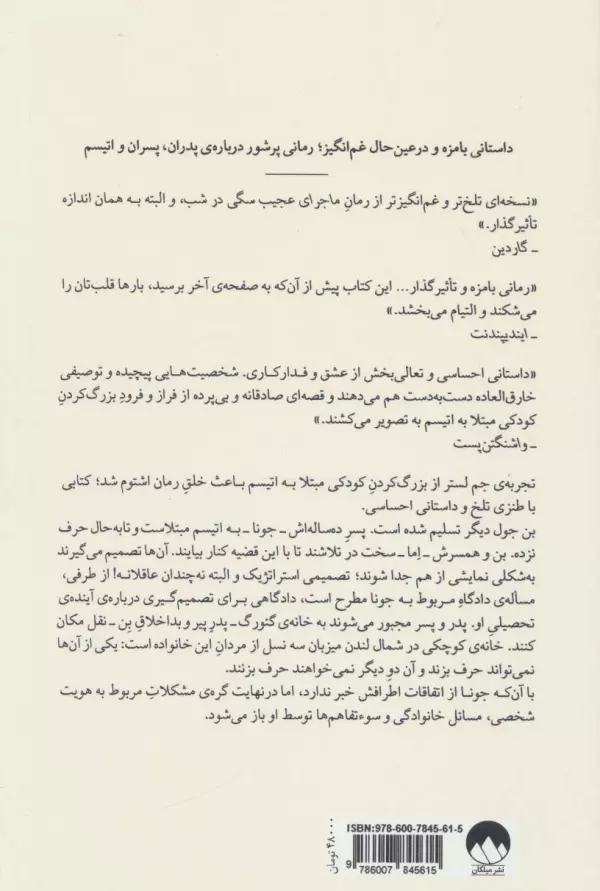 داستانی بامزه و درعین‌حال غم‌انگیز؛ رمانی پرشور درباره‌ی پدران، پسران و اتیسم
«نسخه‌ای تلخ‌تر و غم‌انگیزتر از رمانِ ماجرای عجیب سگی در شب، و البته به همان اندازه
تأثیرگذار.»
ـ گاردین
«رمانی بامزه و تأثیرگذار... این کتاب پیش از آن‌که به صفحه‌ی آخر برسید، بارها قلب‌تان را
می‌شکند و التیام می‌بخشد.»
ـ ایندیپندنت
«داستانی احساسی و تعالی‌بخش از عشق و فداکاری. شخصیت‌هایی پیچیده و توصیفی
خارق‌العاده دست‌به‌دست هم می‌دهند و قصه‌ای صادقانه و بی‌پرده از فراز و فرودِ بزرگ‌کردنِ
کودکی مبتلا به اتیسم به تصویر می‌کشند.»
ـ واشنگتن‌پست
تجربه‌ی جم لستر از بزرگ‌کردنِ کودکی مبتلا به اتیسم باعث خلقِ رمان اشتوم شد؛ کتابی
با طنزی تلخ و داستانی احساسی.
بن جول دیگر تسلیم شده است. پسرِ ده‌ساله‌اش ـ جونا ـ به اتیسم مبتلاست و تابه‌حال حرف
نزده. بن و همسرش ـ اِما ـ سخت در تلاشند تا با این قضیه کنار بیایند. آن‌ها تصمیم می‌گیرند
به‌شکلی نمایشی از هم جدا شوند؛ تصمیمی استراتژیک و البته نه‌چندان عاقلانه! از طرفی،
مسأله‌ی دادگاهِ مربوط به جونا مطرح است، دادگاهی برای تصمیم‌گیری درباره‌ی آینده‌ی
تحصیلیِ او. پدر و پسر مجبور می‌شوند به خانه‌ی گئورگ ـ پدرِ پیر و بداخلاقِ بِن ـ نقل مکان
کنند. خانه‌ی کوچکی در شمال لندن میزبان سه نسل از مردانِ این خانواده است: یکی از آن‌ها
نمی‌تواند حرف بزند و آن دوِ دیگر نمی‌خواهند حرف بزنند.
با آن‌که جونا از اتفاقات اطرافش خبر ندارد، اما درنهایت گره‌ی مشکلاتِ مربوط به هویت
شخصی، مسائل خانوادگی و سوءتفاهم‌ها توسط او باز می‌شود.
۴۸۰۰۰ تومان
ISBN:978-600-7845-61-5
9 786007 845615
نشر میلکان